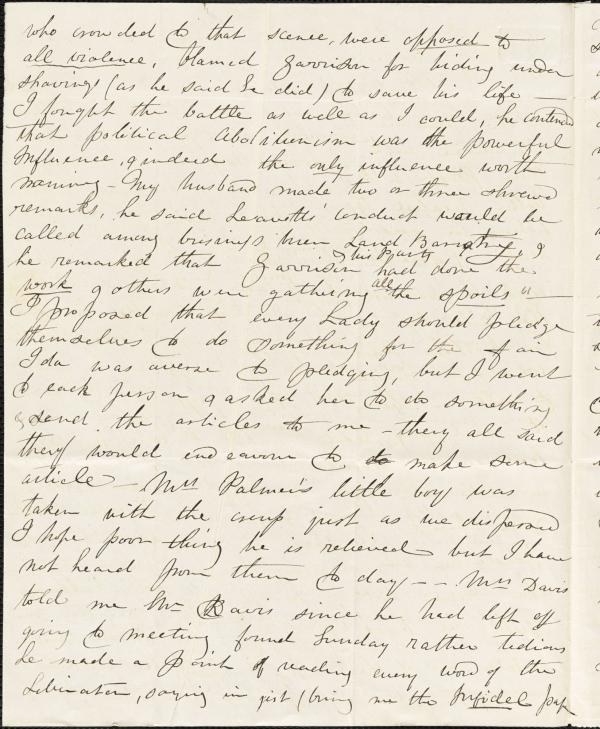 who crowded to that scene, were opposed to
all violence, blamed Garrison for hiding under
shavings (as he said he did) to save his life —
I fought the battle as well as I could, he contended
that political Abolitionism was the powerful
Influence, & indeed the only influence worth
naming — My husband made two or three shrewd
remarks, he said Leavitts' conduct would be
called among business men Land Barratry, &
he remarked that Garrison & his Party had done the
work & others were gathering all the spoils" —
I proposed that every Lady should pledge
themselves to do something for the fair
Ida was averse to pledging, but I went
to each person & asked her to do something
& send the articles to me — they all said
they would endeavour to make some
article — Mrs Palmer's little boy was
taken with the croup just as we dispersed
I hope poor thing he is relieved but I have
not heard from them to day — — Mrs Davis
told me Mr Davis since he had left off
going to meeting found Sunday rather tedious
he made a point of reading every word of the
Liberator, saying in jest (bring me the Infidel pap